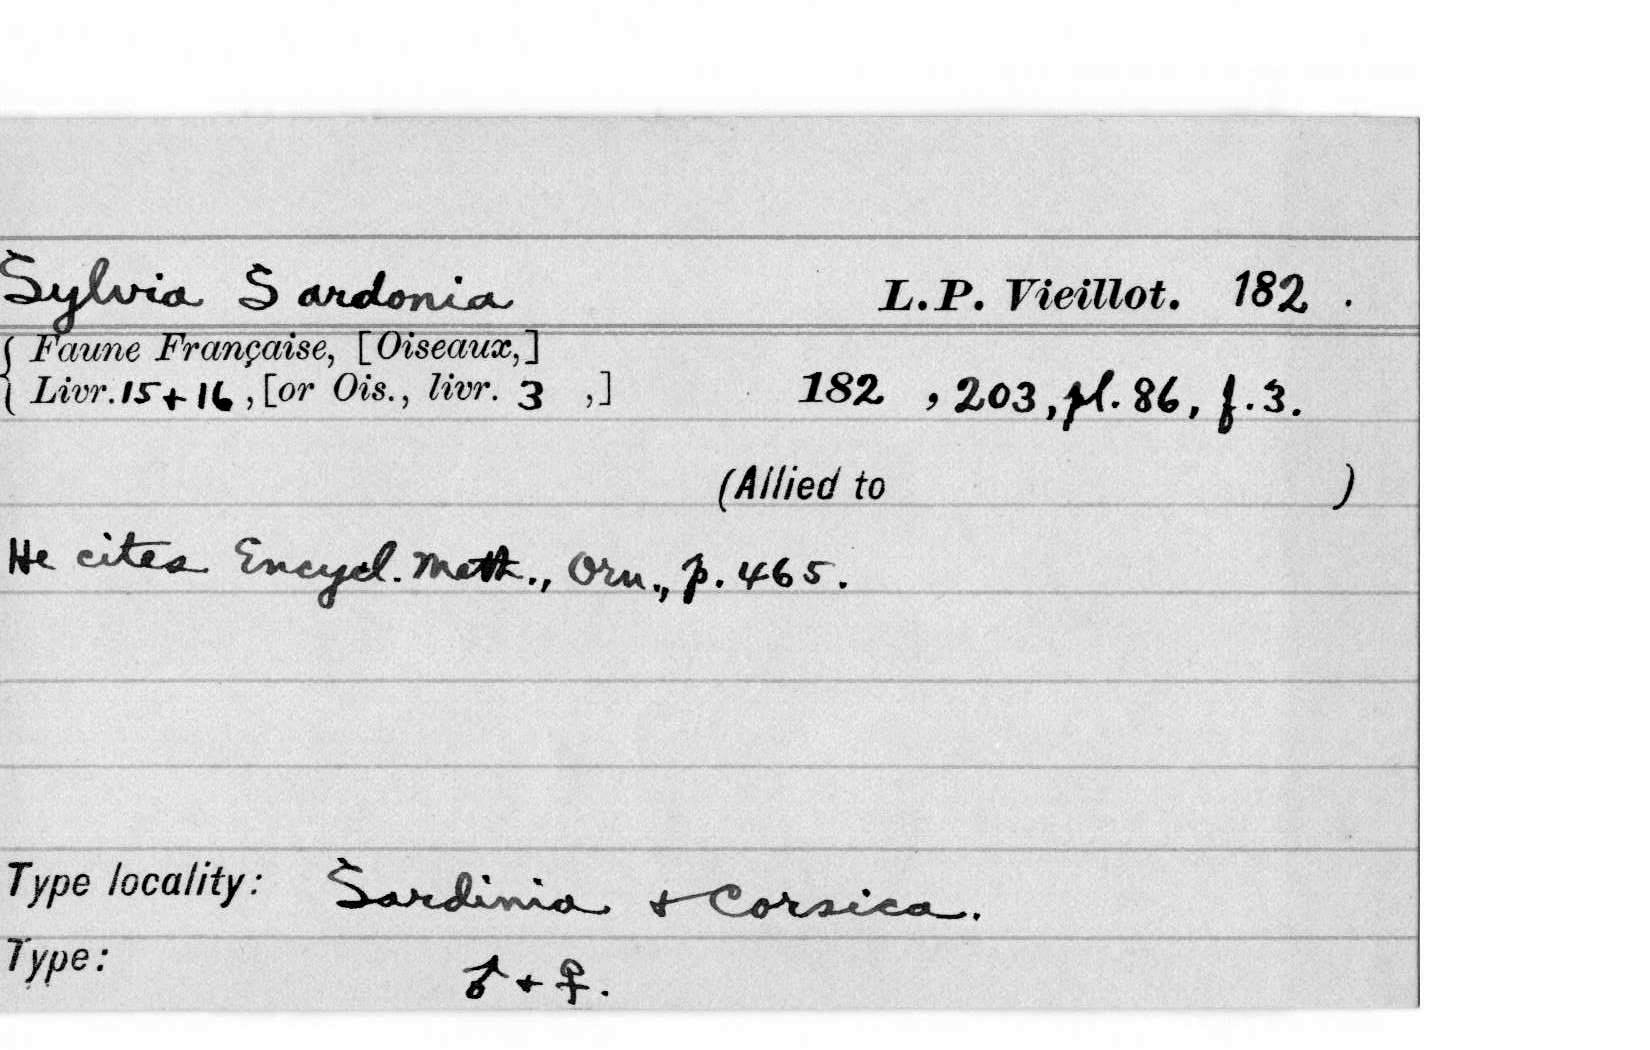 Sylvia Sardonia L.P. Vieillot. 182 .
Faune Française, [Oiseaux,]
Livr. 15 + 16, [or Ois., livr. 3 ,] 182 , 203, pl. 86, f. 3.
(Allied to )
He cites Encycl. Meth., Orn., p. 465.
Type locality: Sardinia + Corsica.
Type: ♂ + ♀.